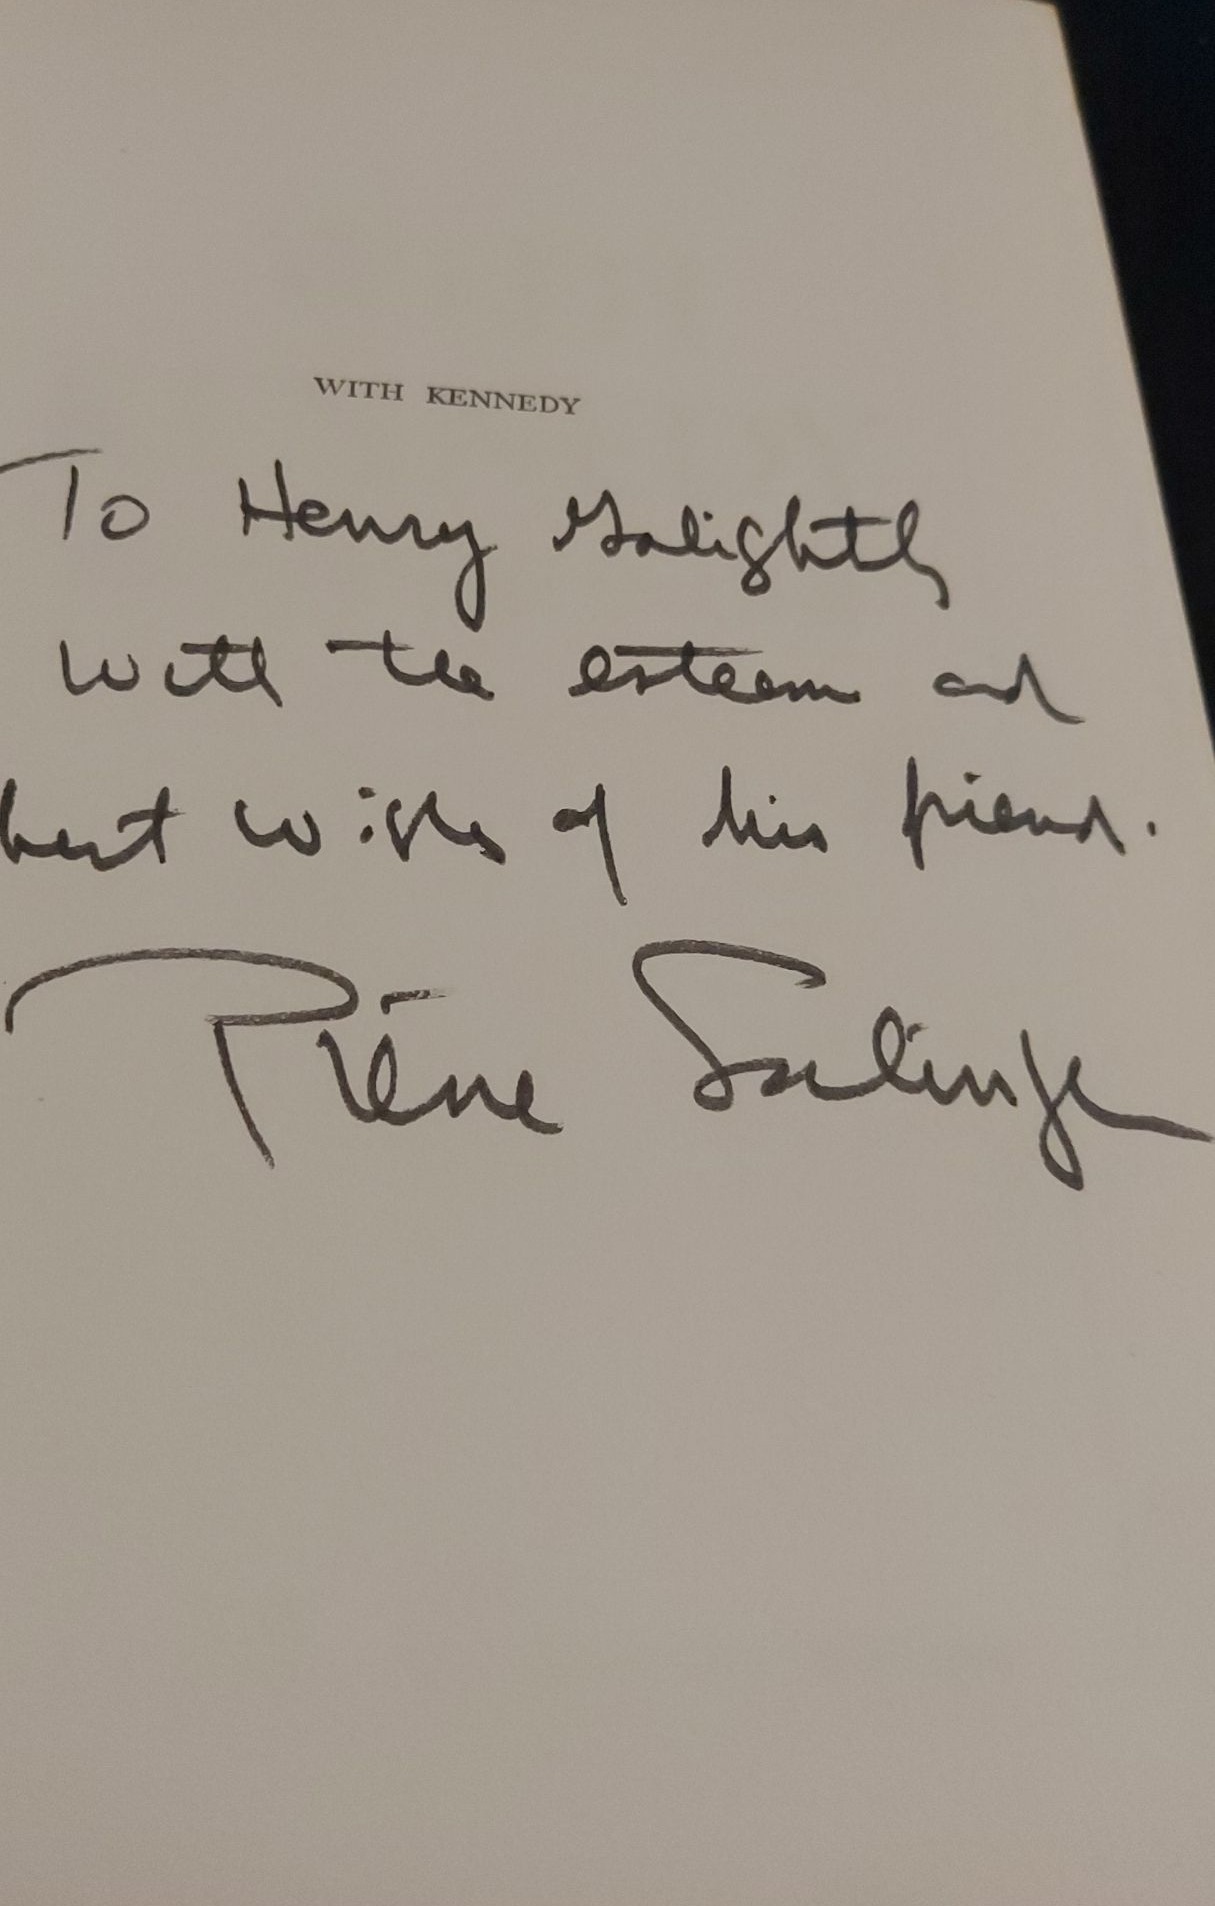 WITH KENNEDY
To Henry Golightly
with the esteem and
best wishes of his friend.
Pierre Salinger